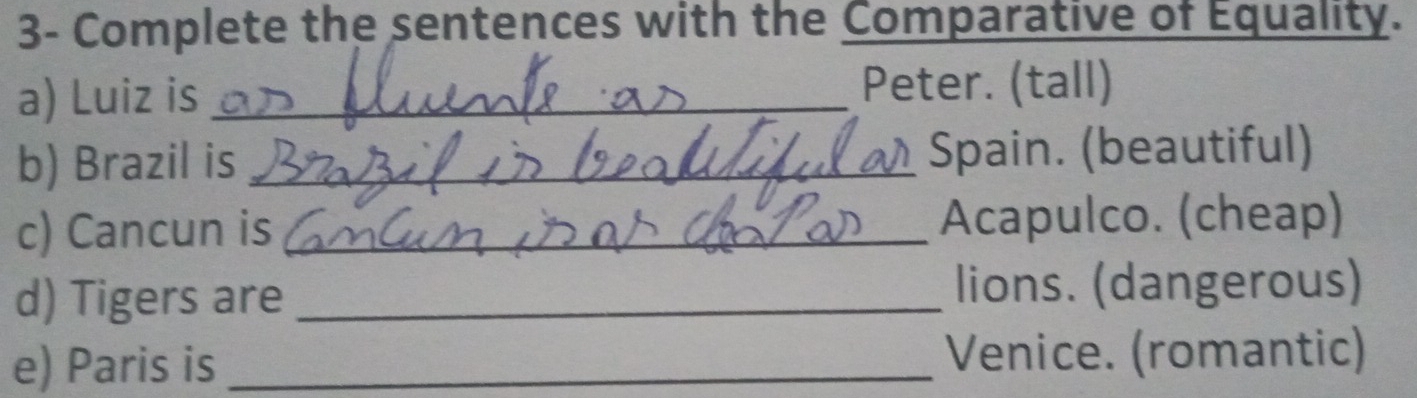 3- Complete the sentences with the Comparative of Equality.
a) Luiz is as fluente as Peter. (tall)
b) Brazil is Brazil is beautiful as Spain. (beautiful)
c) Cancun is Cancun is as as Acapulco. (cheap)
d) Tigers are ____________ lions. (dangerous)
e) Paris is ____________ Venice. (romantic)